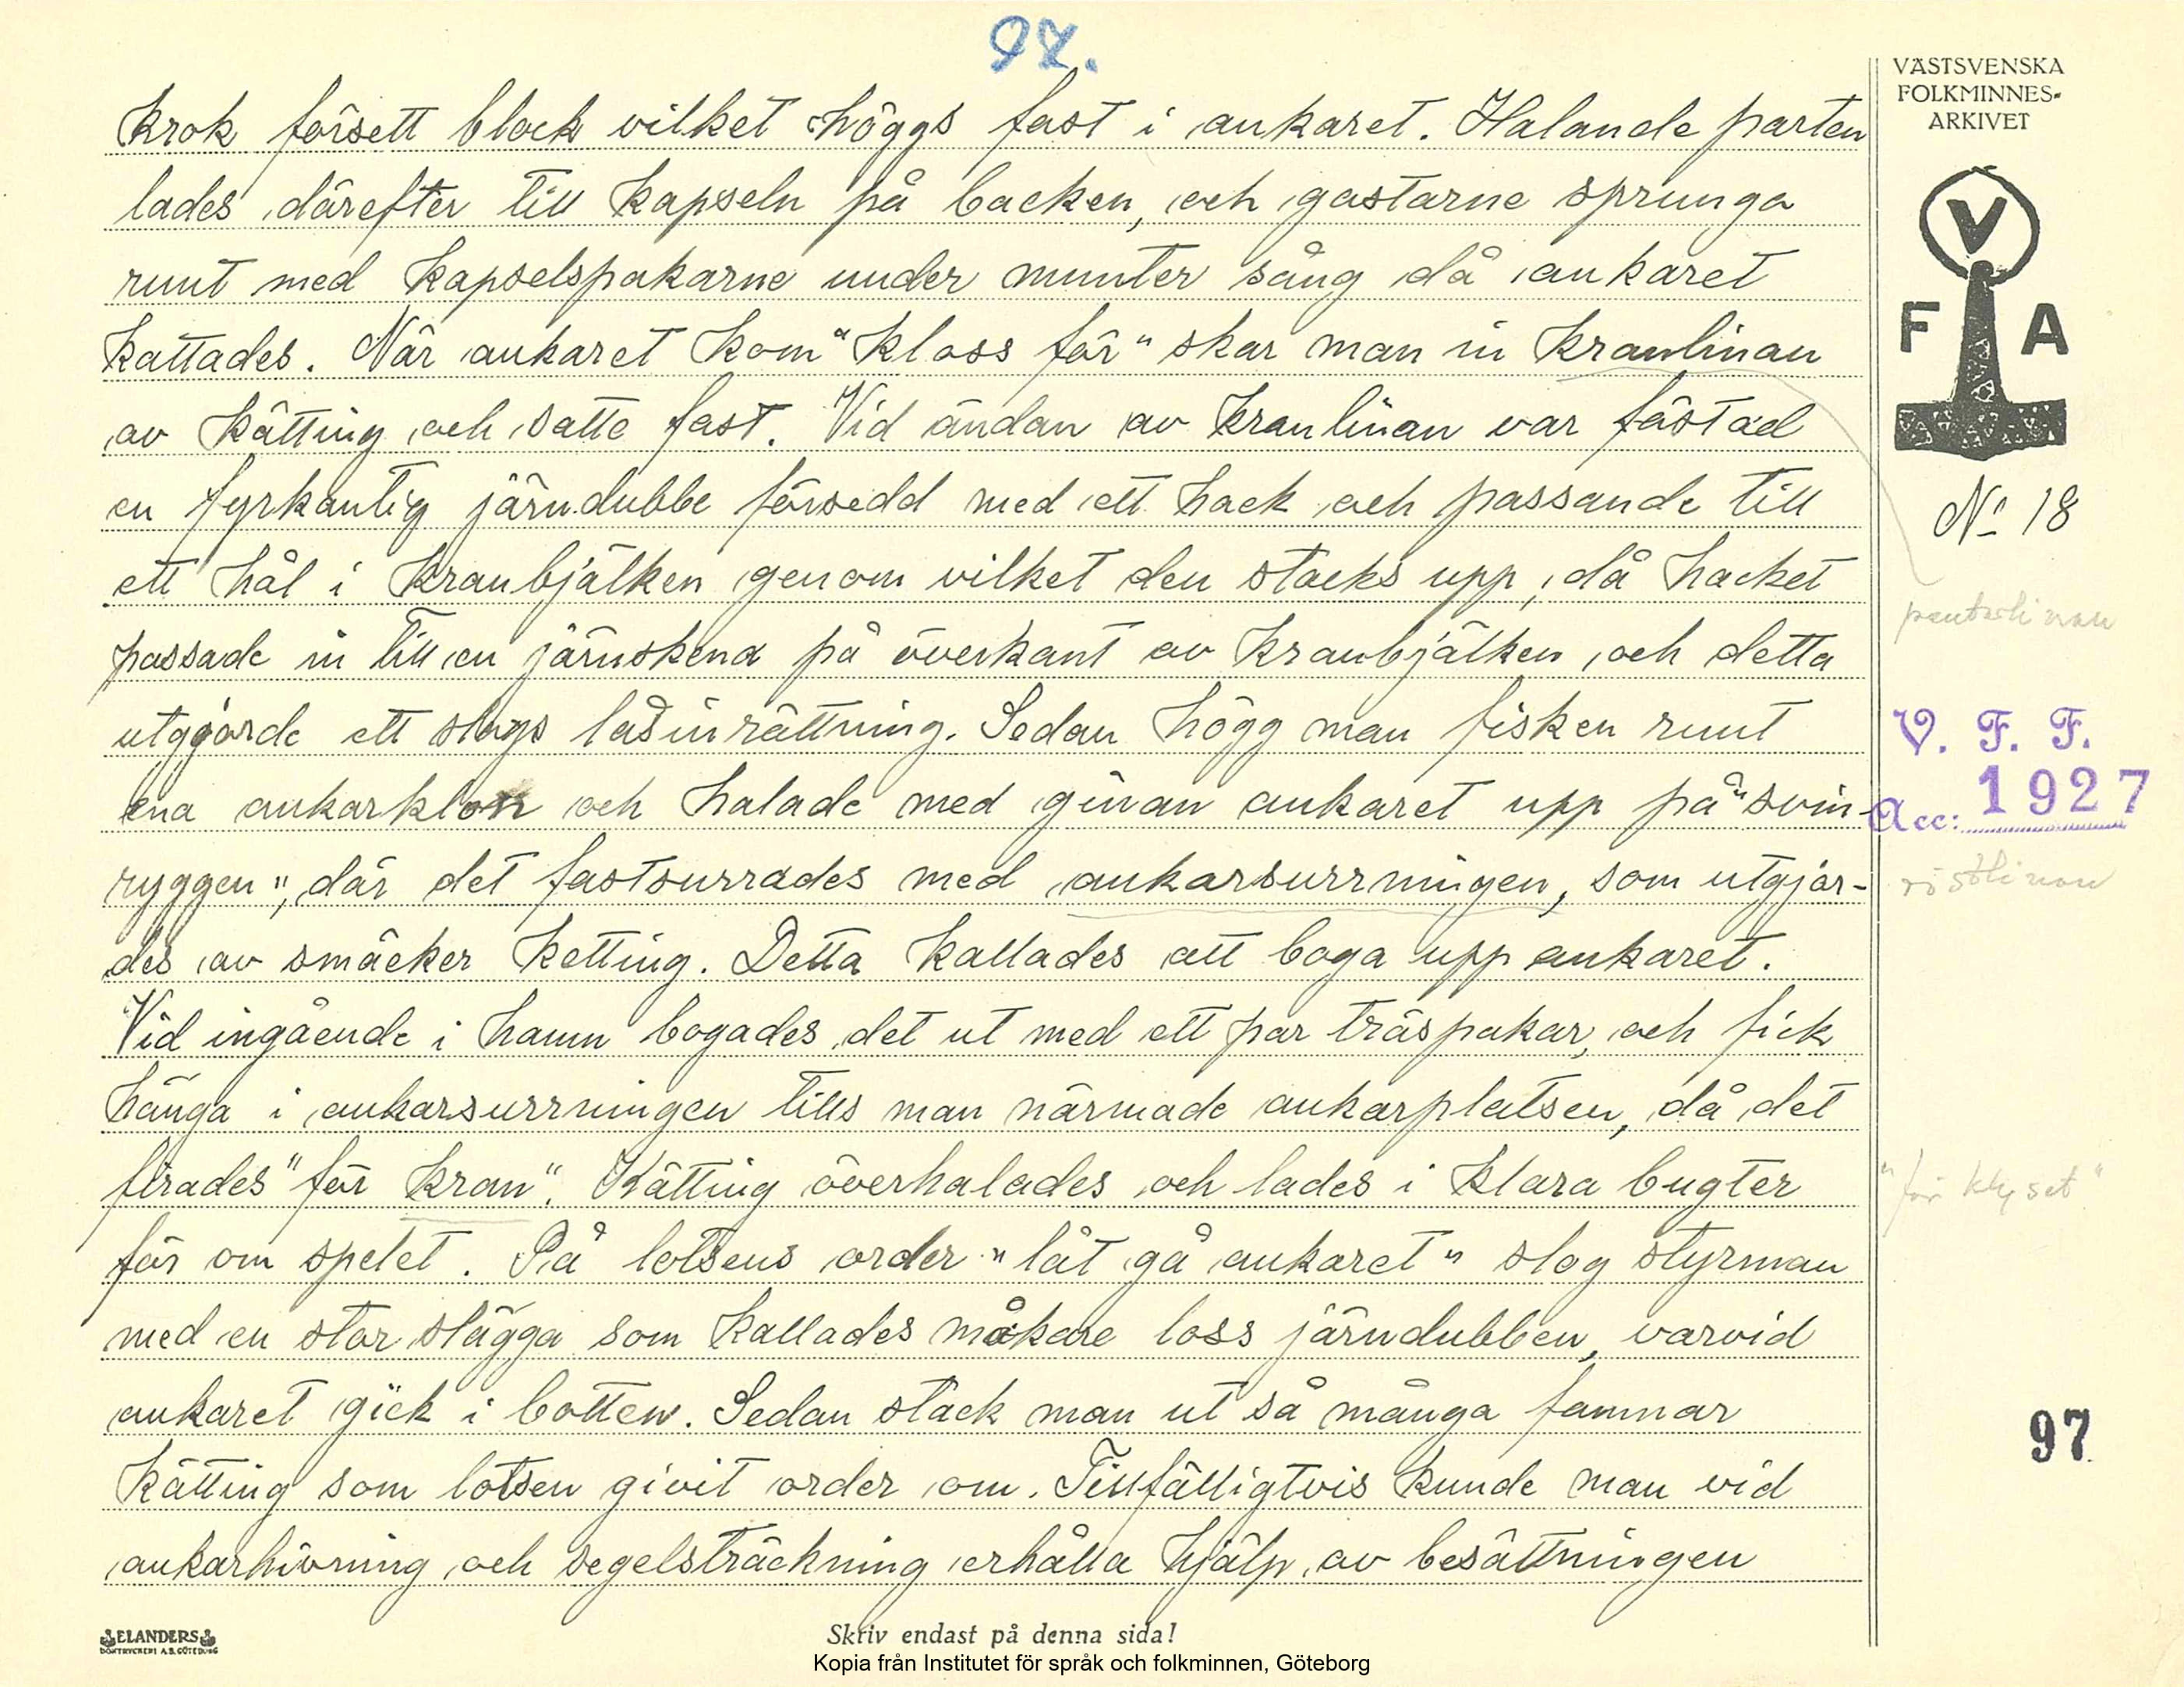 97.
krok försett block vilket höggs fast i ankaret. Halande parten
lades därefter till kapseln på backen, och gastarne sprunga
runt med kapselspakarne under munter sång då ankaret
kattades. När ankaret kom "kloss för" skar man in kranlinan
av kätting och satte fast. Vid ändan av kranlinan var fästad
en fyrkantig järndubbe försedd med ett hack och passande till
ett hål i kranbjälken genom vilket den stacks upp, då hacket
passade in till en järnskena på överkant av kranbjälken, och detta
utgjorde ett slags låsinrättning. Sedan högg man fisken runt
ena ankarklon och halade med ginan ankaret upp på "svin-
ryggen", där det fastsurrades med ankarsurrningen, som utgjor-
des av smäcker ketting. Detta kallades att boga upp ankaret.
Vid ingående i hamn bogades det ut med ett par träspakar, och fick
hänga i ankarsurrningen tills man närmade ankarplatsen, då det
firades "för kran". Kätting överhalades och lades i klara bugter
för om spelet. På lotsens order "låt gå ankaret" slog styrman
med en stor slägga som kallades måkare loss järndubben, varvid
ankaret gick i botten. Sedan stack man ut så många famnar
kätting som lotsen givit order om. Tillfälligtvis kunde man vid
ankarhivning och segelsträckning erhålla hjälp av besättningen
VÄSTSVENSKA
FOLKMINNES-
ARKIVET
V
F A
No 18
penterlinan
V. F. F.
Acc: 1927
röstlinan
"för klyset"
97
ELANDERS
BOKTRYCKERI A.B. GÖTEBORG
Skriv endast på denna sida!
Kopia från Institutet för språk och folkminnen, Göteborg